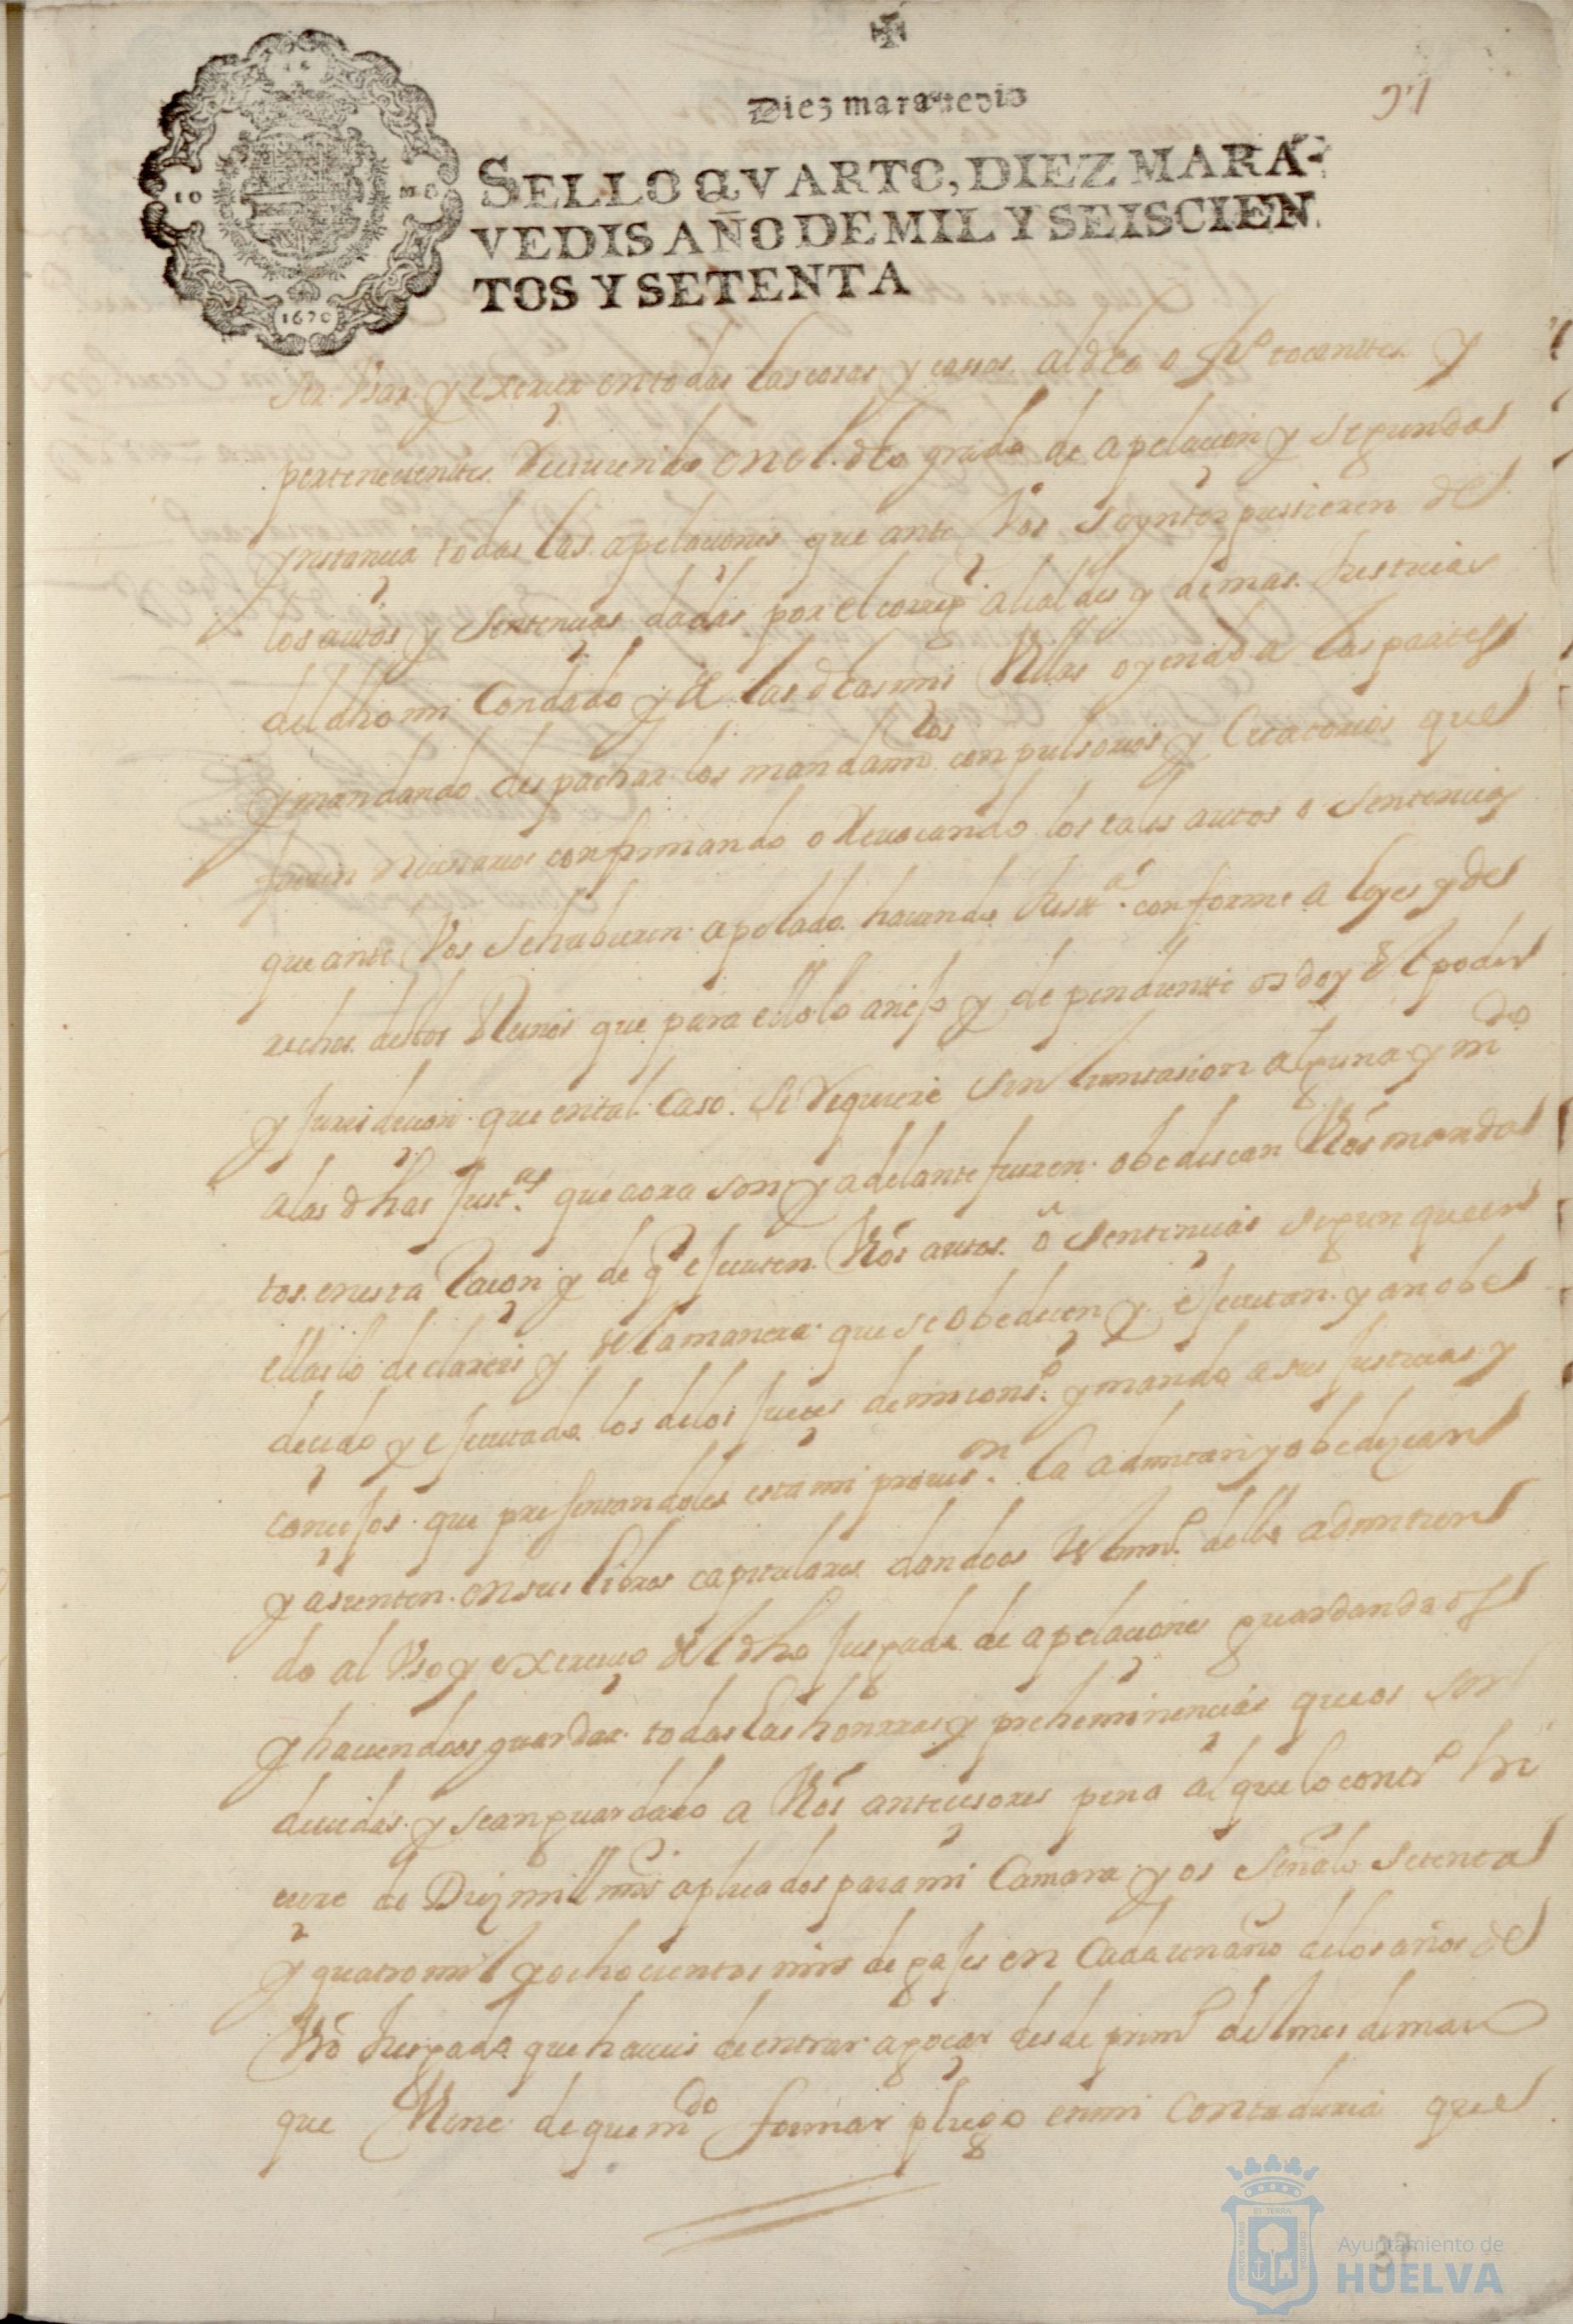 Diez maravedis
SELLO QVARTO, DIEZ MARA-
VEDIS AÑO DE MIL Y SEISCIEN
TOS Y SETENTA
1670
ser Usar y exercer en todas las cosas y casos al dho o fio tocantes y
pertenecientes Uciniendo en el dho grado de apelacion y segunda
ynstancia todas las apelaciones que ante Vos se ynterpussieren de
los autos y sentencias dadas por el correg.r alcaldes y demas Justicias
del dho mi Condado y de las dhas mis Villas oyendo a las partes
y mandando despachar los mandam.tos conpulsorios y Citatorios que
fueren necessarios confirmando o Revocando los tales autos o sentencias
que ante Vos se hubieren apelado haciendo Just.a conforme a leyes y de
rechos destos Reinos que para ello lo anejo y dependiente os doy el poder
y Jurisdicion que en tal Caso se requiere sin limitasion alguna y m.do
a las dhas Just.as que aora son y adelante fueren obedescan Vros manda
tos en esta Racon y de q.e ejecuten Vros autos o sentencias segun que en
ellas lo declareis y de la manera que se obedecen y ejecutan y an obe
decido y ejecutado los de los Jueces de mi cons.o y mando a sus Justicias y
concejos que presentandoles esta mi provis.on la admitan y obedezcan
y asienten en sus libros capitulares dandoos testim.o della admitien
do al Uso y exercicio del dho Jusgado de apelaciones guardandoos
y haciendoos guardar todas las honrras y preheminencias que os son
devidas y sean guardado a Vros antecesores pena al que lo contr.o hi
ciere de Diez mill mrs aplicados para mi Camara y os señalo setenta
y quatro mil y ochocientos mrs de gajes en Cada un año de los años de
Vro Jusgado que haveis de entrar a gocar desde prim.o del mes de março
que Viene de que m.do formar pliego en mi Contaduria que
Ayuntamiento de
HUELVA